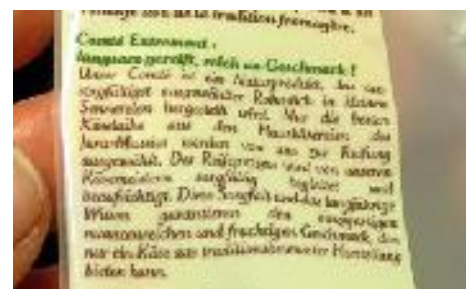 de la tradition fromagère.
Comté Entremont :
langsam gereift, reich an Geschmack !
Unser Comté ist ein Naturprodukt, das aus
sorgfältigst ausgewählter Rohmilch in kleinen
Sennereien hergestellt wird. Nur die besten
Käselaibe aus den
werden von uns zur Reifung
ausgewählt. Der Reifeprozess wird von unseren
Käsemeistern sorgfältig begleitet und
beaufsichtigt. Diese Sorgfalt und das langjährige
Wissen garantieren den einzigartigen
nuancenreichen und fruchtigen Geschmack, den
nur ein Käse aus traditionsbewusster Herstellung
bieten kann.